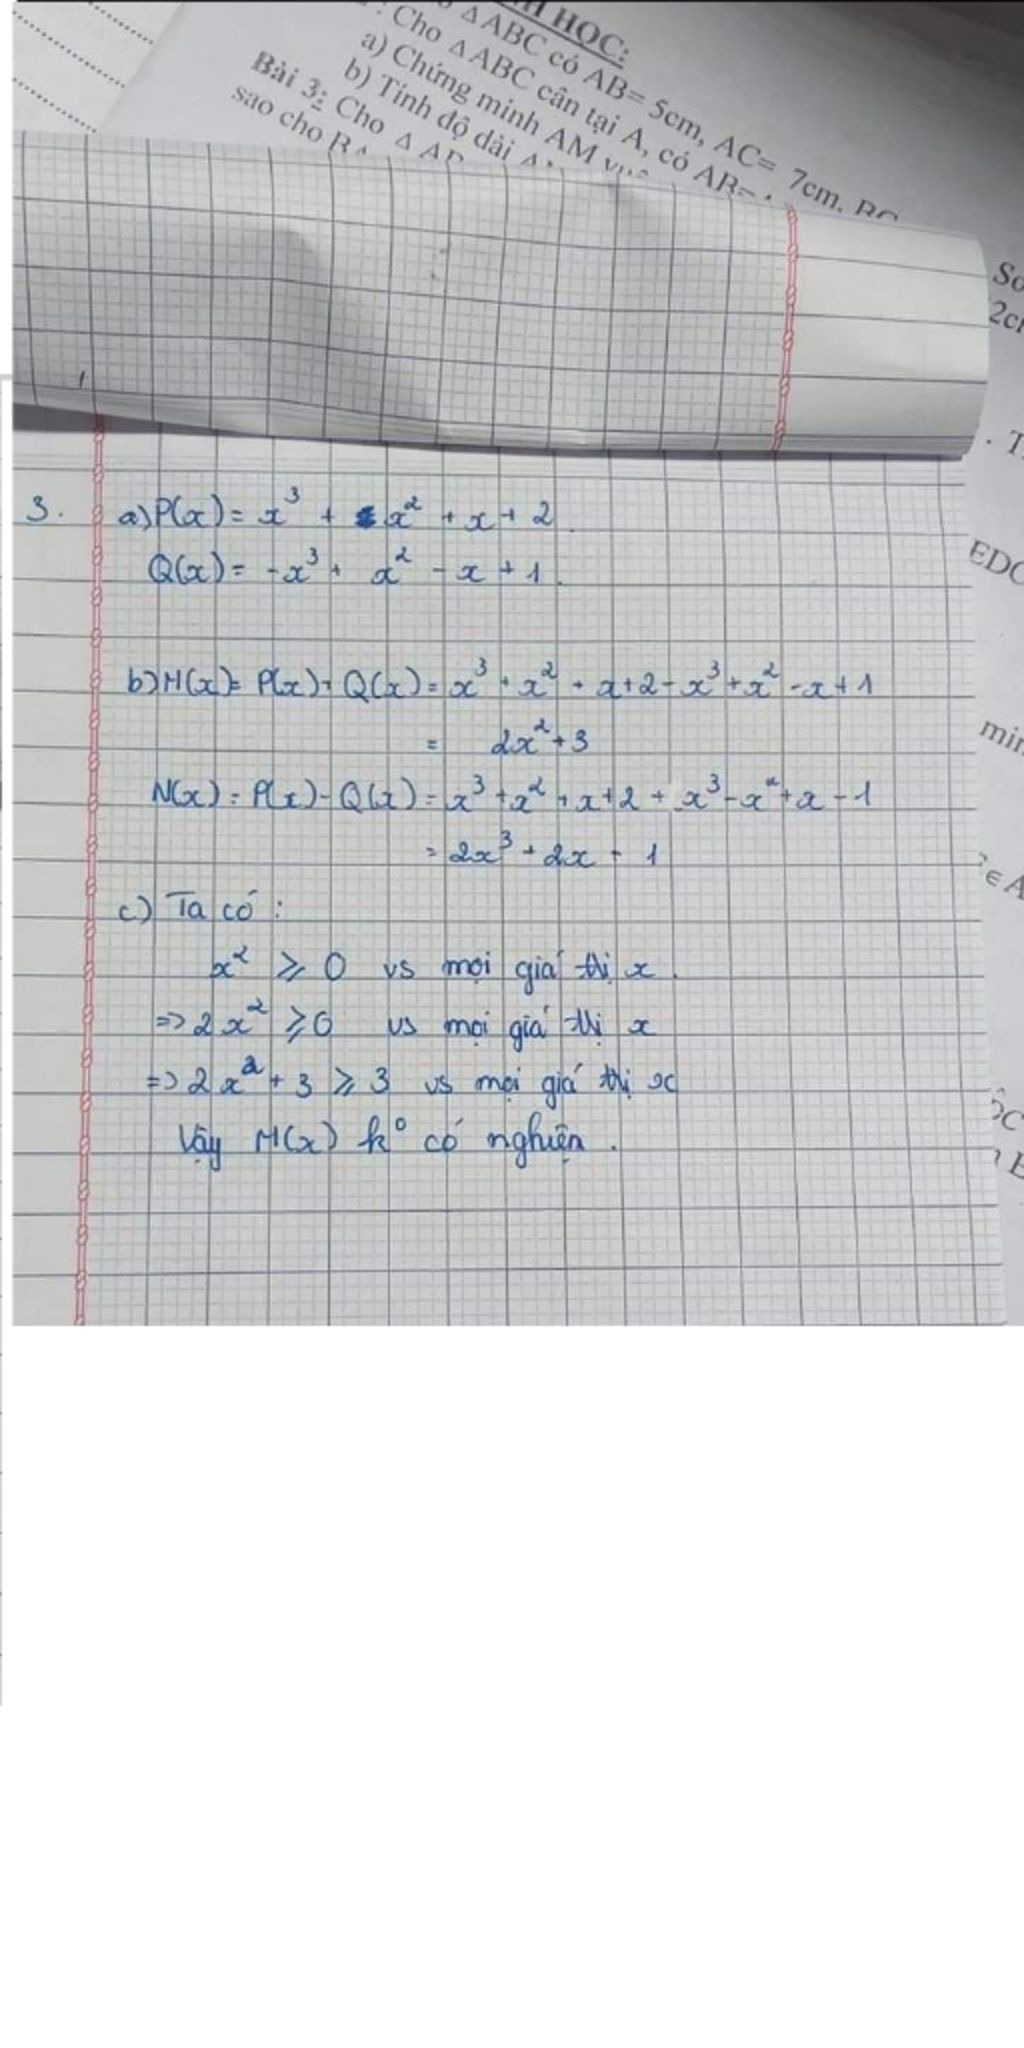 H HỌC:
Δ ABC có AB= 5cm, AC= 7cm.
: Cho Δ ABC cân tại A, có AB=
a) Chứng minh AM
b) Tính độ dài
Bài 3: Cho Δ
sao cho
EDC
∈ A
3. a) P(x) = x³ + x² + x + 2.
Q(x) = -x³ + x² - x + 1.
b) M(x) = P(x) + Q(x) = x³ + x² + x + 2 - x³ + x² - x + 1
= 2x² + 3
N(x) = P(x) - Q(x) = x³ + x² + x + 2 + x³ - x² + x - 1
= 2x³ + 2x + 1
c) Ta có :
x² ≥ 0 vs mọi giá trị x.
=> 2x² ≥ 0 vs mọi giá trị x
=> 2x² + 3 ≥ 3 vs mọi giá trị x
Vậy M(x) k° có nghiện.